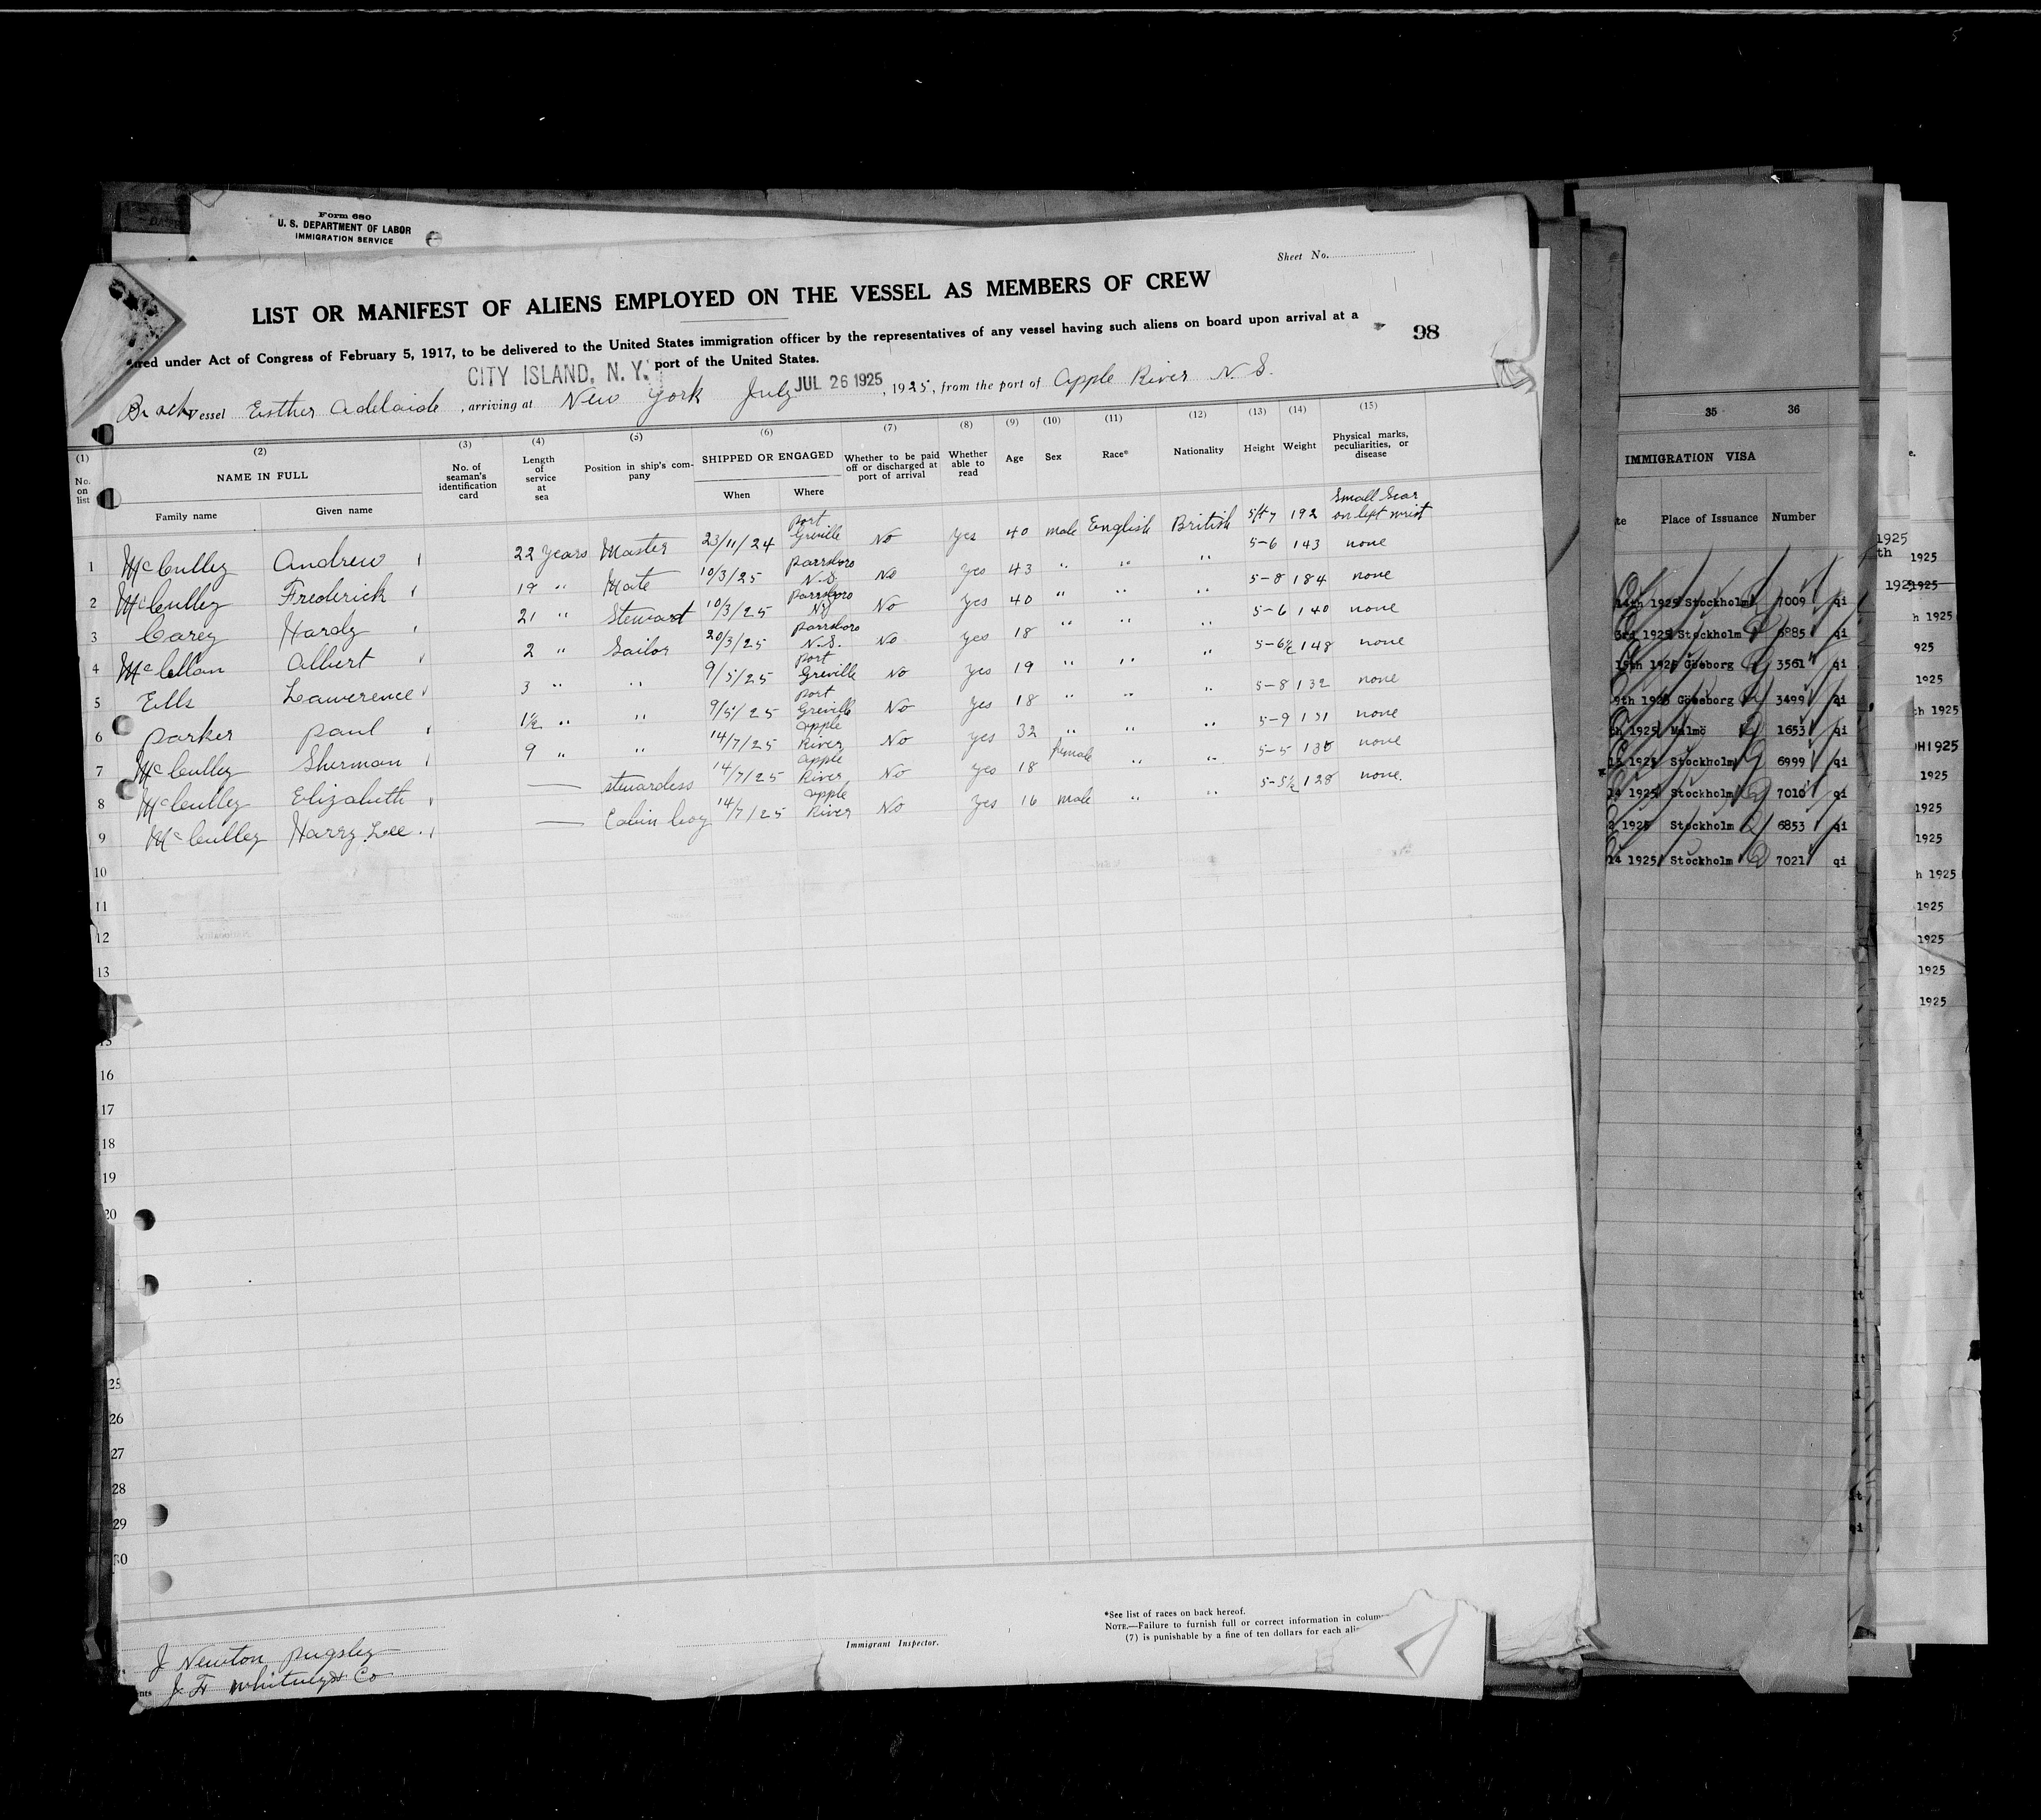 Form 680
U. S. DEPARTMENT OF LABOR
IMMIGRATION SERVICE
Sheet No.
LIST OR MANIFEST OF ALIENS EMPLOYED ON THE VESSEL AS MEMBERS OF CREW
98
ired under Act of Congress of February 5, 1917, to be delivered to the United States immigration officer by the representatives of any vessel having such aliens on board upon arrival at a
port of the United States.
CITY ISLAND, N. Y.
Vessel Esther Adelaide, arriving at New York July JUL 26 1925, 1925, from the port of Apple River N. S.
(1) (2) (3) (4) (5) (6) (7) (8) (9) (10) (11) (12) (13) (14) (15)
No. on list NAME IN FULL Family name Given name No. of seaman's identification card Length of service at sea Position in ship's company SHIPPED OR ENGAGED When Where Whether to be paid off or discharged at port of arrival Whether able to read Age Sex Race* Nationality Height Weight Physical marks, peculiarities, or disease
1 McCulley Andrew 22 years Master 23/11/24 Port Greville No Yes 40 male English British 5ft 7 192 Small Scar on left wrist
2 McCulley Frederick 19 " Mate 10/3/25 Parrsboro N.S. No Yes 43 " " " 5-6 143 none
3 Carey Hardy 21 " Stewart 10/3/25 Parrsboro NS No Yes 40 " " " 5-8 184 none
4 McLellan Albert 2 " Sailor 20/3/25 Parrsboro N.S. No Yes 18 " " " 5-6 140 none
5 Ells Lawerence 3 " " 9/5/25 Port Greville No Yes 19 " " " 5-6½ 148 none
6 Parker Paul 1½ " " 9/5/25 Port Greville No Yes 18 " " " 5-8 132 none
7 McCulley Sherman 9 " " 14/7/25 Apple River No Yes 32 " " " 5-9 none
8 McCulley Elizabeth — stewardess 14/7/25 Apple River No Yes 18 female " " 5-5 none
9 McCulley Harry Lee — Cabin boy 14/7/25 Apple River No Yes 16 male " " 5-5½ 128 none.
10
11
12
13
15
16
17
18
19
20
25
26
27
28
29
30
J Newton Pugsley
J F Whitney & Co
Immigrant Inspector.
*See list of races on back hereof.
NOTE.—Failure to furnish full or correct information in
(7) is punishable by a fine of ten dollars for each
35 36
IMMIGRATION VISA
Place of Issuance Number
14th 1925 Stockholm 7009 qi
3rd 1925 Stockholm 6885 qi
15th 1925 Göteborg 3561 qi
9th 1925 Göteborg 3499 qi
1925 Malmö 1653 qi
15 1925 Stockholm 6999 qi
14 1925 Stockholm 7010 qi
2 1925 Stockholm 6853 qi
14 1925 Stockholm 7021 qi
1925
th 1925
1925
h 1925
925
1925
th 1925
1925
1925
1925
1925
h 1925
1925
1925
1925
1925